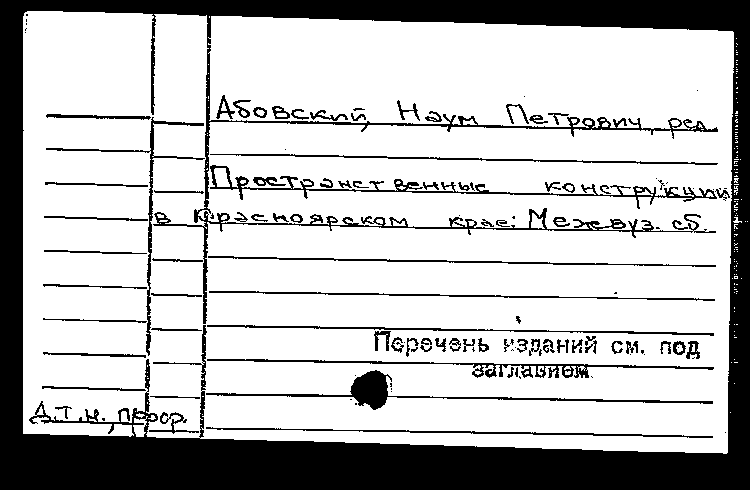 Абовский, Наум Петрович, ред.
Пространственные конструкции
в Красноярском крае: Межвуз. сб.
Перечень изданий см. под
заглавием
Д.Т.н., проф.